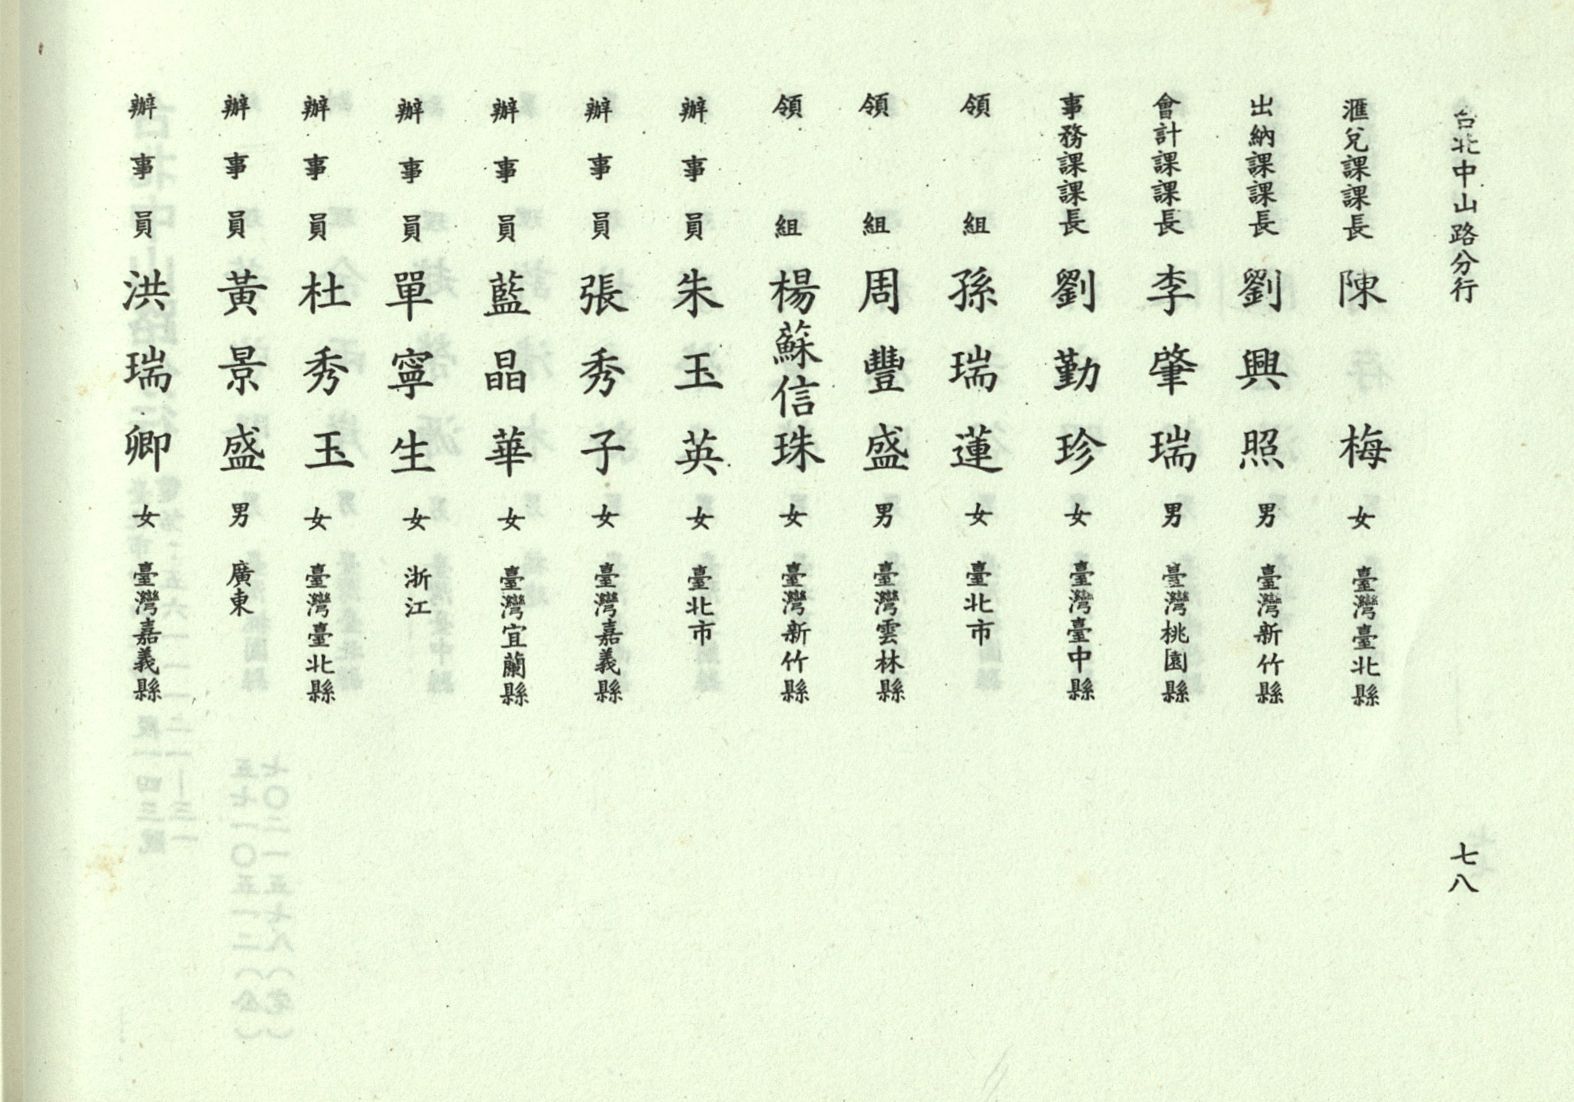 台北中山路分行
七八
滙兌課課長 陳梅 女 臺灣臺北縣
出納課課長 劉興照 男 臺灣新竹縣
會計課課長 李肇瑞 男 臺灣桃園縣
事務課課長 劉勤珍 女 臺灣臺中縣
領組 孫瑞蓮 女 臺北市
領組 周豐盛 男 臺灣雲林縣
領組 楊蘇信珠 女 臺灣新竹縣
辦事員 朱玉英 女 臺北市
辦事員 張秀子 女 臺灣嘉義縣
辦事員 藍晶華 女 臺灣宜蘭縣
辦事員 單寧生 女 浙江
辦事員 杜秀玉 女 臺灣臺北縣
辦事員 黃景盛 男 廣東
辦事員 洪瑞卿 女 臺灣嘉義縣